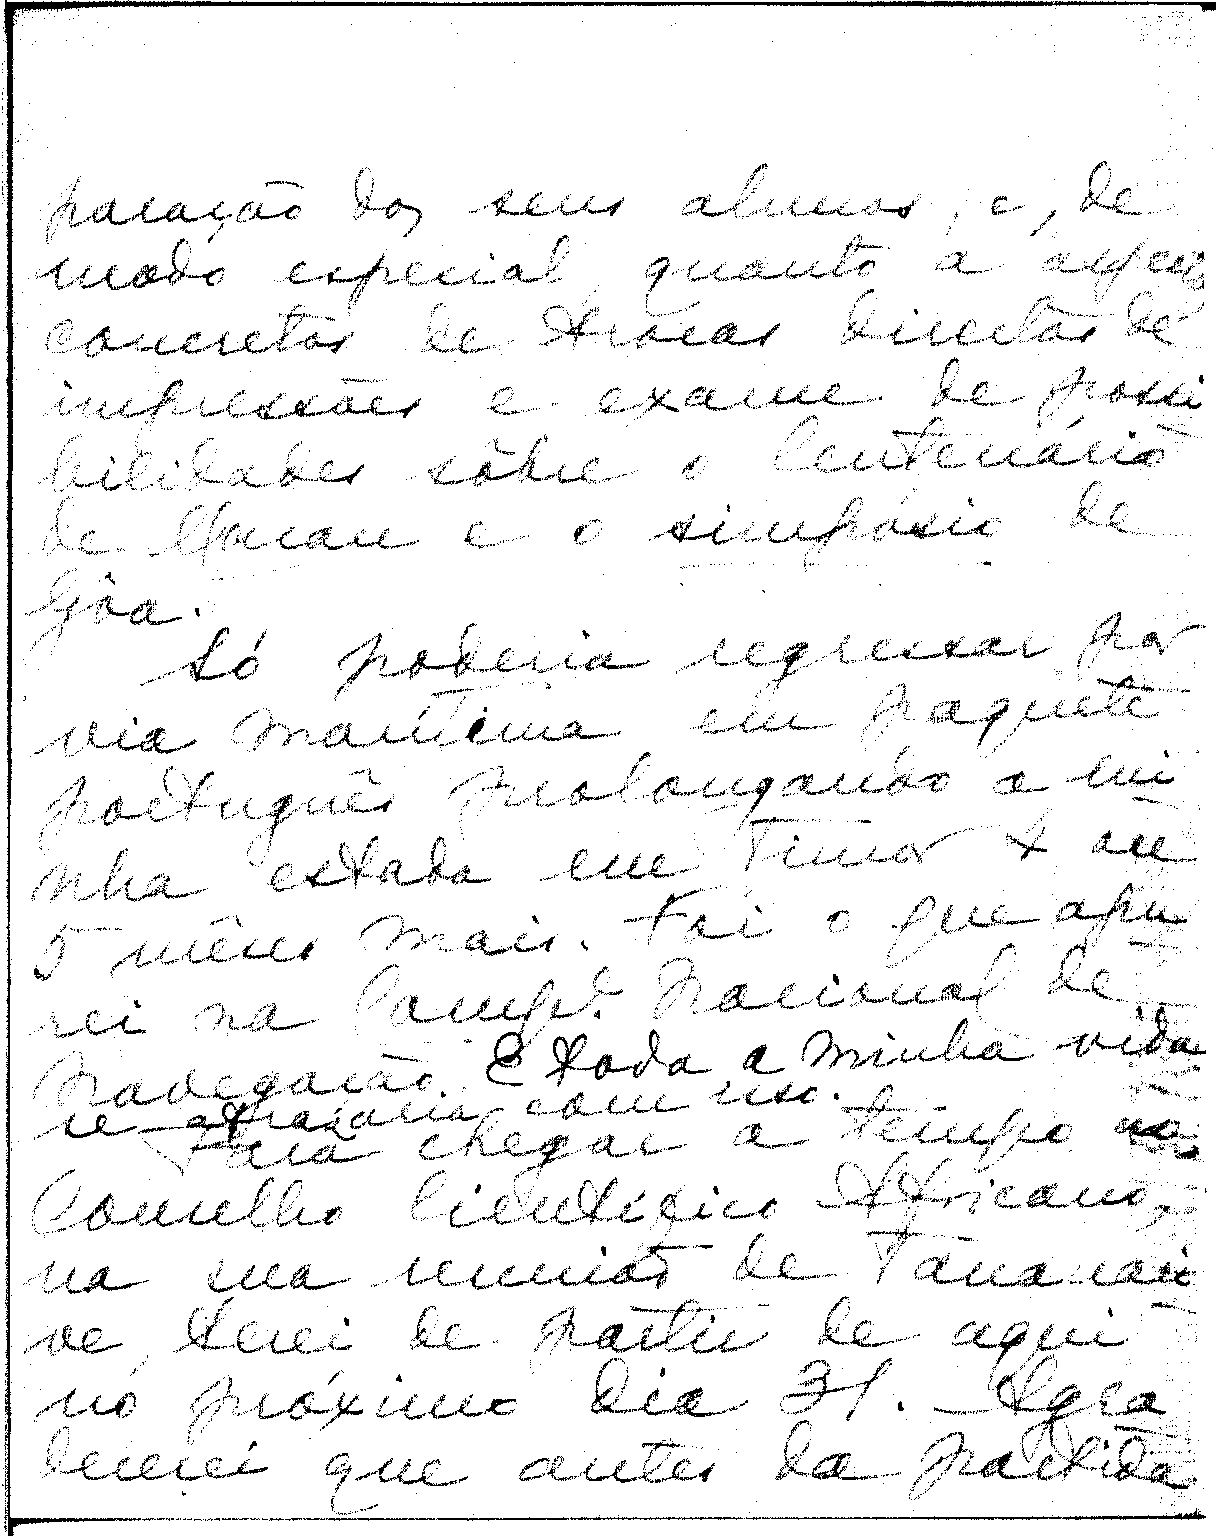 paração dos seus alunos, e, de
modo especial, quanto a
concretos de trocas directas de
impressões e exame de possi
bilidades sôbre o Centenário
de Macau e o simpósio de
Gôa.
Só poderia regressar por
via marítima em paquete
português prolongando a mi
nha estada em Timor 4 ou
5 mêses mais. Foi o que apu
rei na Comp.ª Nacional de
Navegação. E toda a minha vida
se atrazaria com isso.
Para chegar a tempo no
Conselho Cientifico Africano,
na sua reunião de Tananari
ve, terei de partir de aqui
no próximo dia 31. Agra
decerei que antes da partida